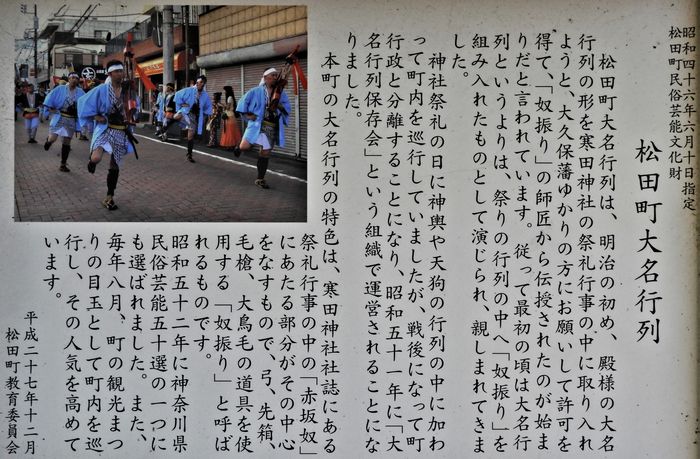 昭和四十六年六月十日指定
松田町民俗芸能文化財
松田町大名行列
松田町大名行列は、明治の初め、殿様の大名
行列の形を寒田神社の祭礼行事の中に取り入れ
ようと、大久保藩ゆかりの方にお願いして許可を
得て、「奴振り」の師匠から伝授されたのが始ま
りだと言われています。従って最初の頃は大名行
列というよりは、祭りの行列の中へ「奴振り」を
組み入れたものとして演じられ、親しまれてきま
した。
神社祭礼の日に神輿や天狗の行列の中に加わ
って町内を巡行していましたが、戦後になって町
行政と分離することになり、昭和五十一年に「大
名行列保存会」という組織で運営されることにな
りました。
本町の大名行列の特色は、寒田神社社誌にある
祭礼行事の中の「赤坂奴」
にあたる部分がその中心
をなすもので、弓、先箱、
毛槍、大鳥毛の道具を使
用する「奴振り」と呼ば
れるものです。
昭和五十二年に神奈川県
民俗芸能五十選の一つに
も選ばれました。また、
毎年八月、町の観光まつ
りの目玉として町内を巡
行し、その人気を高めて
います。
平成二十七年十二月
松田町教育委員会